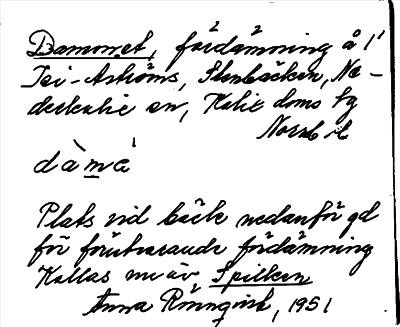 Dammet, fördämning å l'
Isi-Aströms, Stenbäcken, Ne-
derkalix sn, Kalix doms hg
Norrb l
dàmé
Plats vid bäck nedanför gd
för förutvarande fördämning
Kallas nu äv Spilken
Anna Rönnqvist, 1951